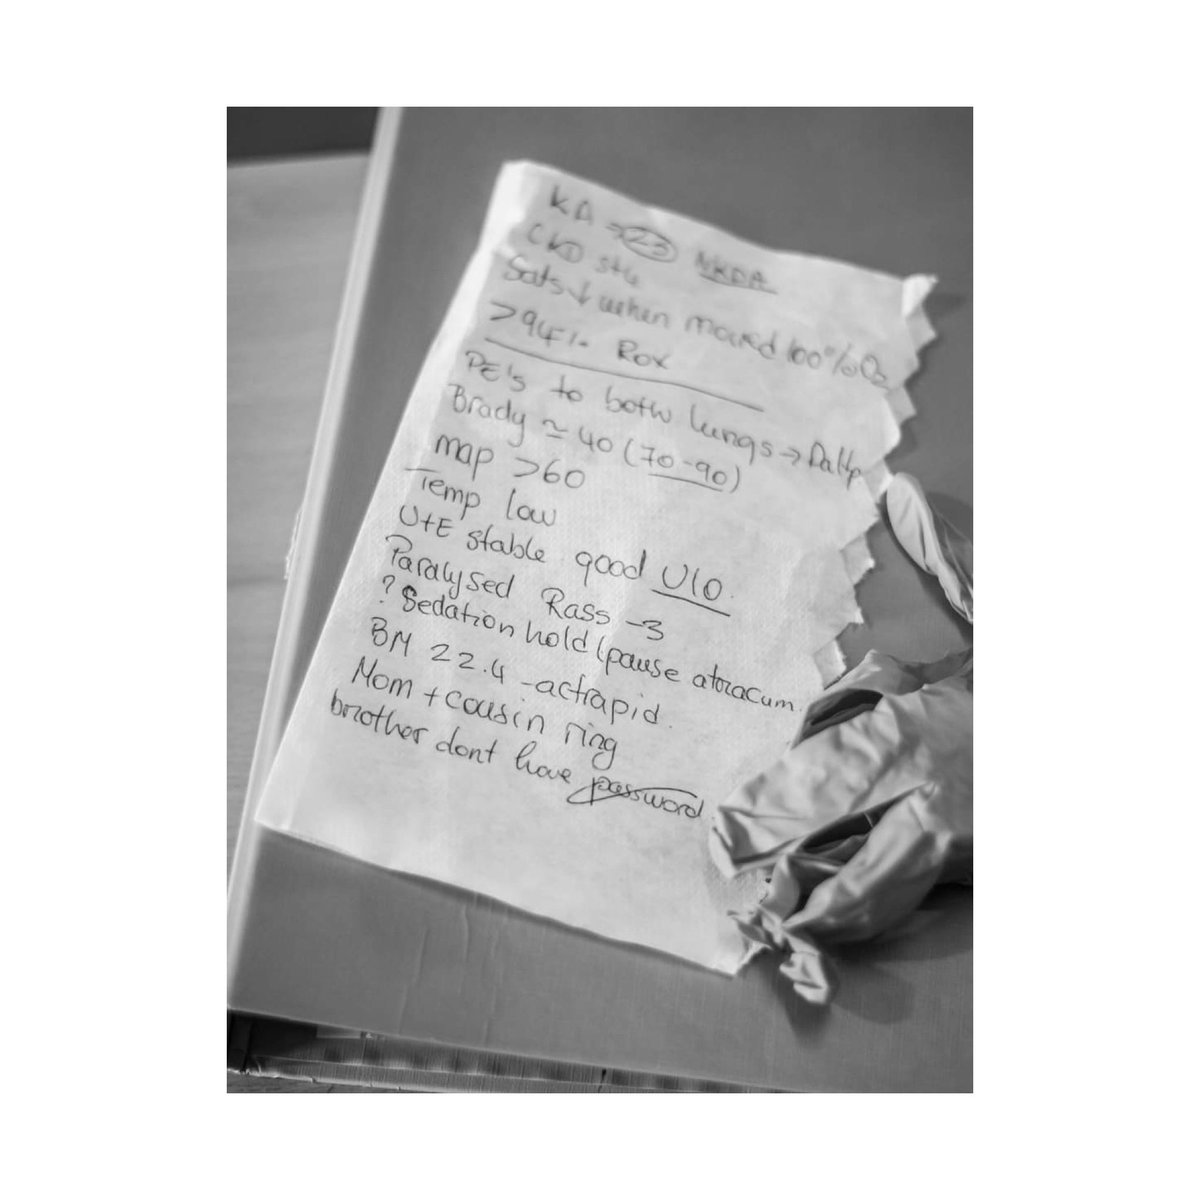 KA → 23 NKDA
CKD st4
Sats ↓ when moved 100% O2
>94% Rox
PE's to both lungs → Daltp
Brady ≃ 40 (70-90)
map >60
Temp low
U+E stable good U/O.
Paralysed Rass -3
? Sedation hold (pause atracum.
BM 22.4 - actrapid.
Mom + cousin ring
brother dont have password.